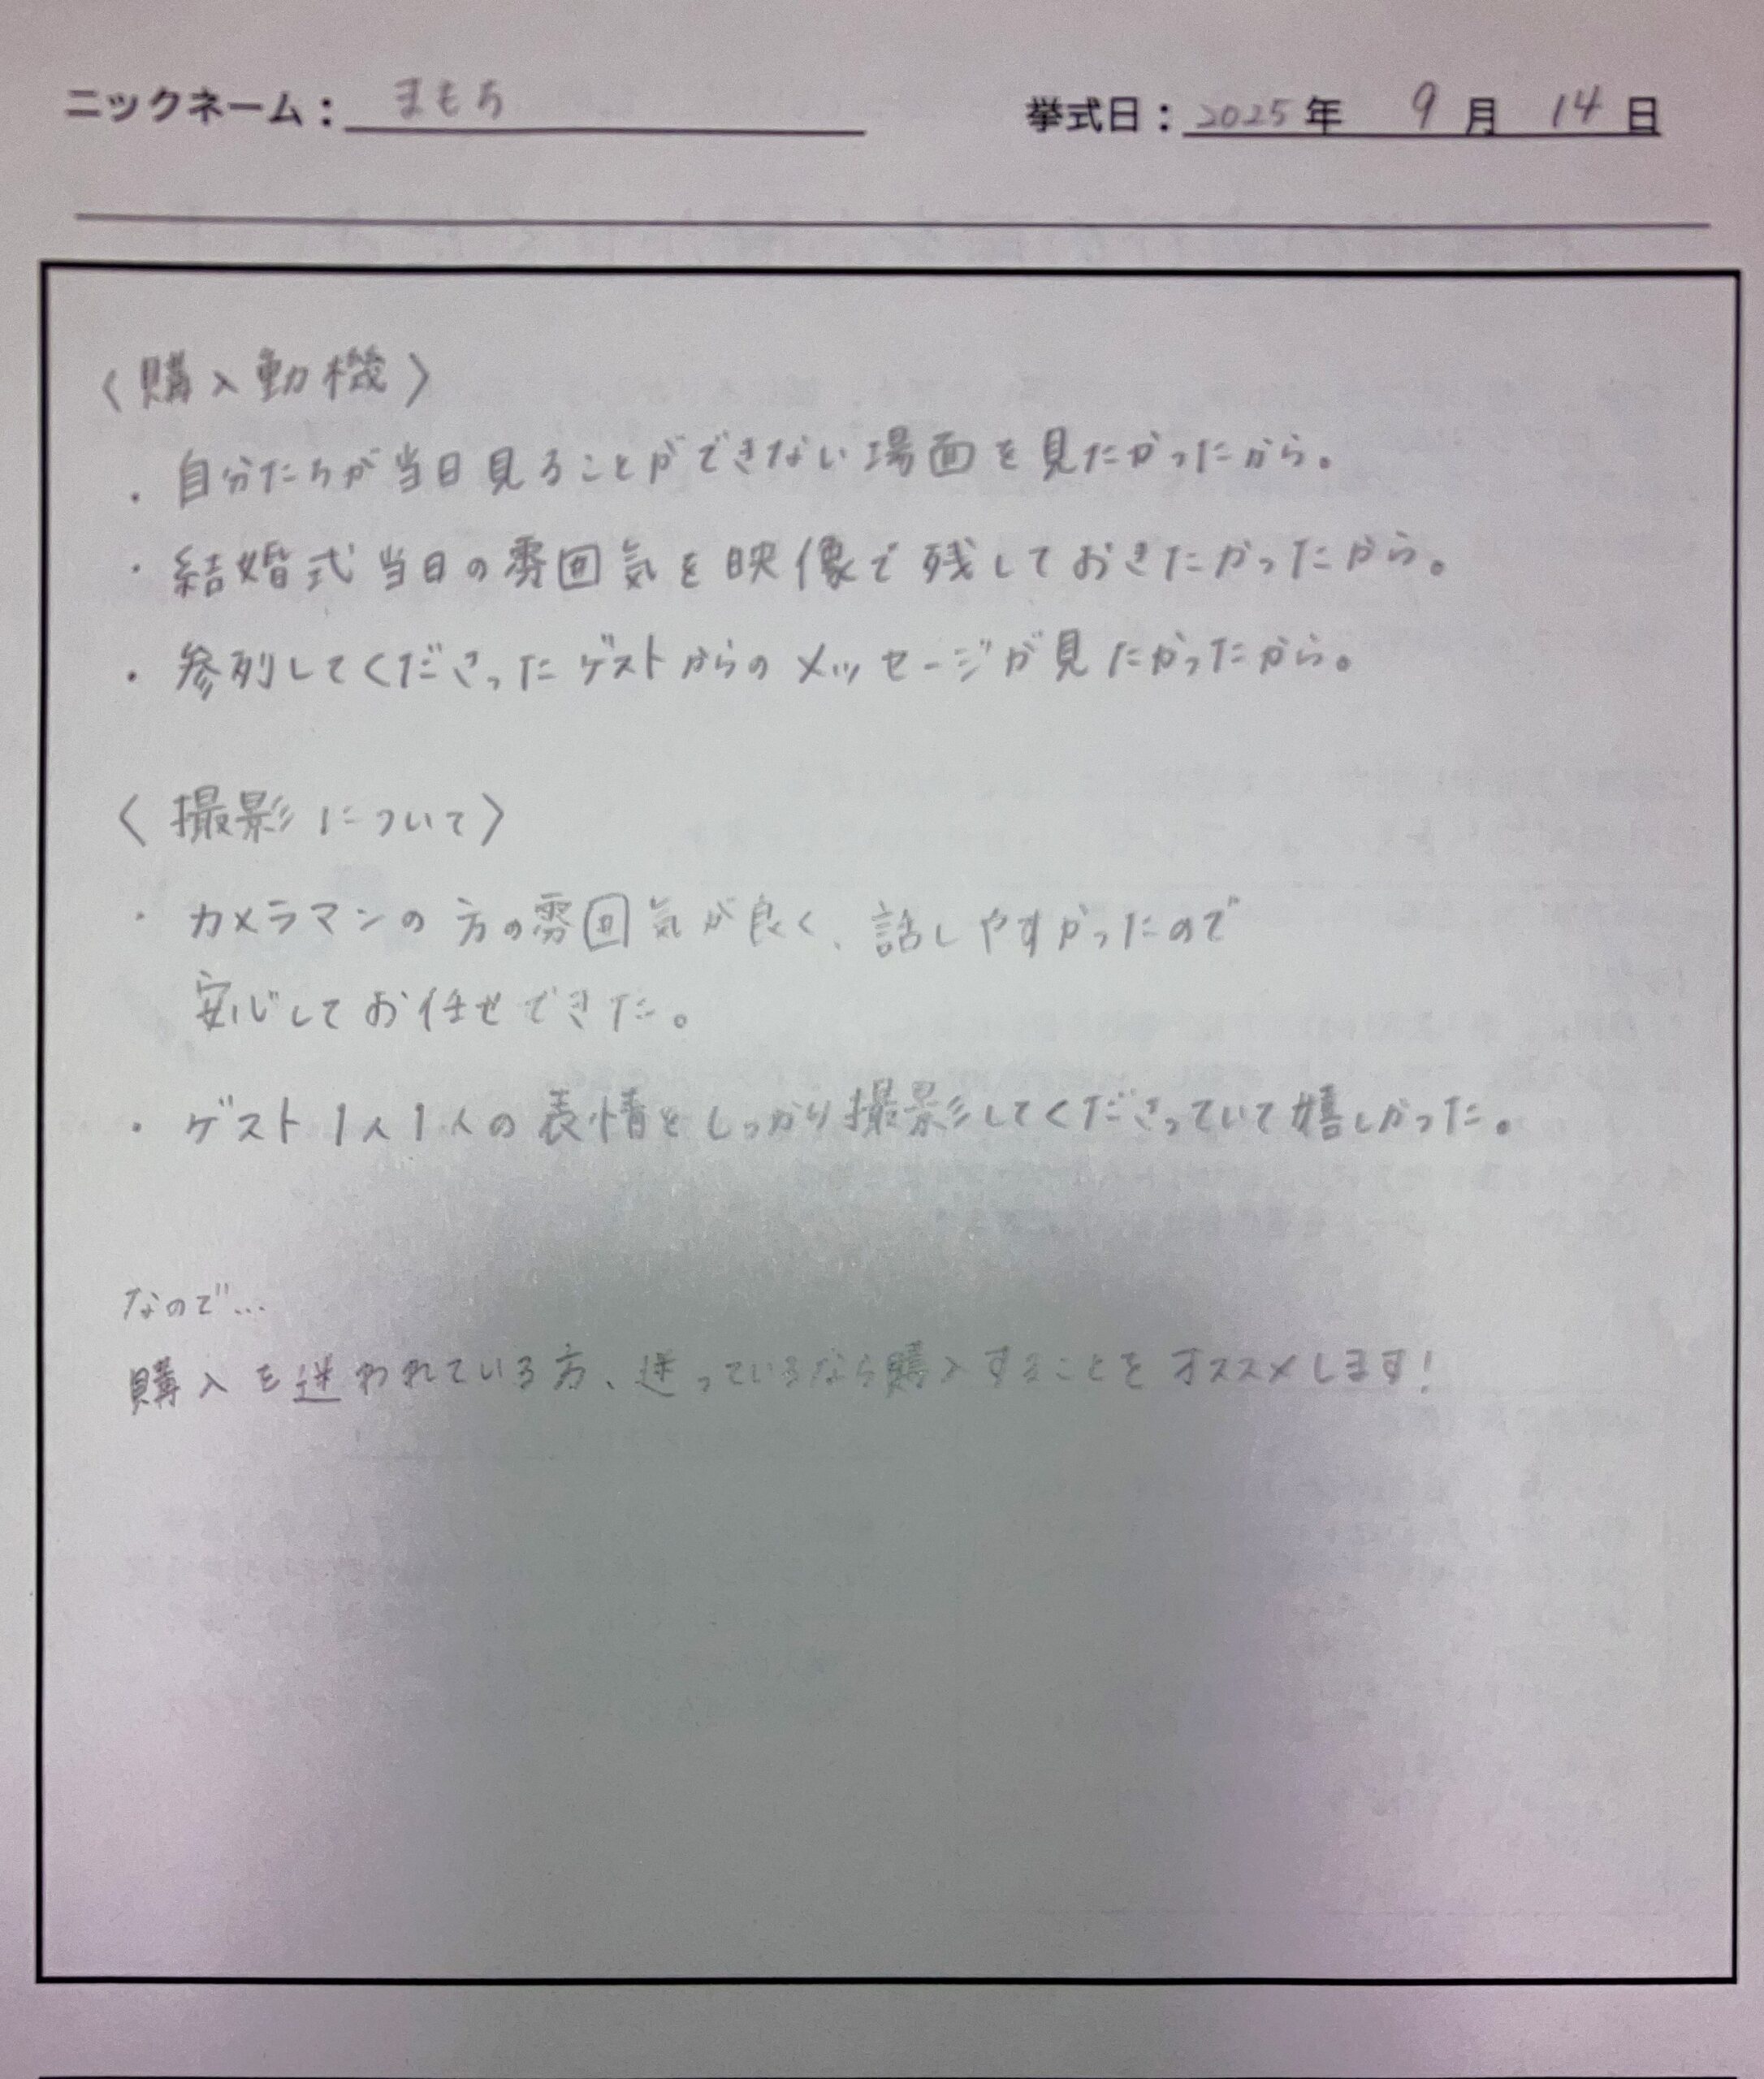 ニックネーム：まもち
挙式日：2025年 9月 14日
〈購入動機〉
・自分たちが当日見ることができない場面を見たかったから。
・結婚式当日の雰囲気を映像で残しておきたかったから。
・参列してくださったゲストからのメッセージが見たかったから。
〈撮影について〉
・カメラマンの方の雰囲気が良く、話しやすかったので
安心してお任せできた。
・ゲスト1人1人の表情をしっかり撮影してくださっていて嬉しかった。
なので…
購入を迷われている方、迷っているなら購入することをオススメします！